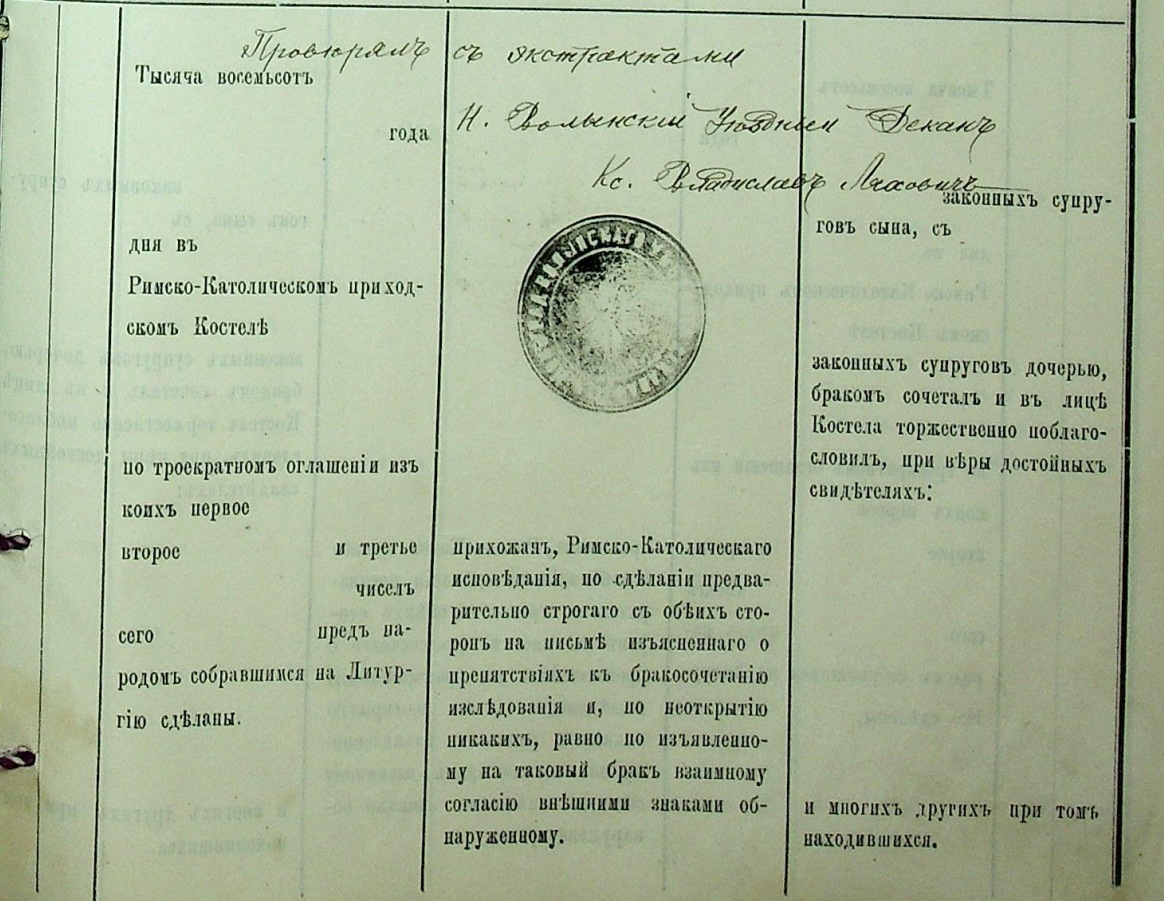 Провѣрялъ съ экстрактами
Н. Волынскій Уѣздный Деканъ
Кс. Владиславъ
Тысяча восемьсотъ
года
дня въ
Римско-Католическомъ приход-
скомъ Костелѣ
по троекратномъ оглашеніи изъ
коихъ первое
второе и третье
чиселъ
сего предъ на-
родомъ собравшимся на Литур-
гію сдѣланы.
прихожан, Римско-Католическаго
исповѣданія, по сдѣланіи предва-
рительно строгаго съ обѣихъ сто-
ронъ на письмѣ изъясненнаго о
препятствіяхъ къ бракосочетанію
изслѣдованія и, по неоткрытію
никакихъ, равно по изъявленно-
му на таковый бракъ взаимному
согласію внѣшними знаками об-
наруженному.
законныхъ супру-
говъ сына, съ
законныхъ супруговъ дочерью,
бракомъ сочеталъ и въ лицѣ
Костела торжественно поблаго-
словилъ, при вѣры достойныхъ
свидѣтеляхъ:
и многихъ другихъ при томъ
находившихся.